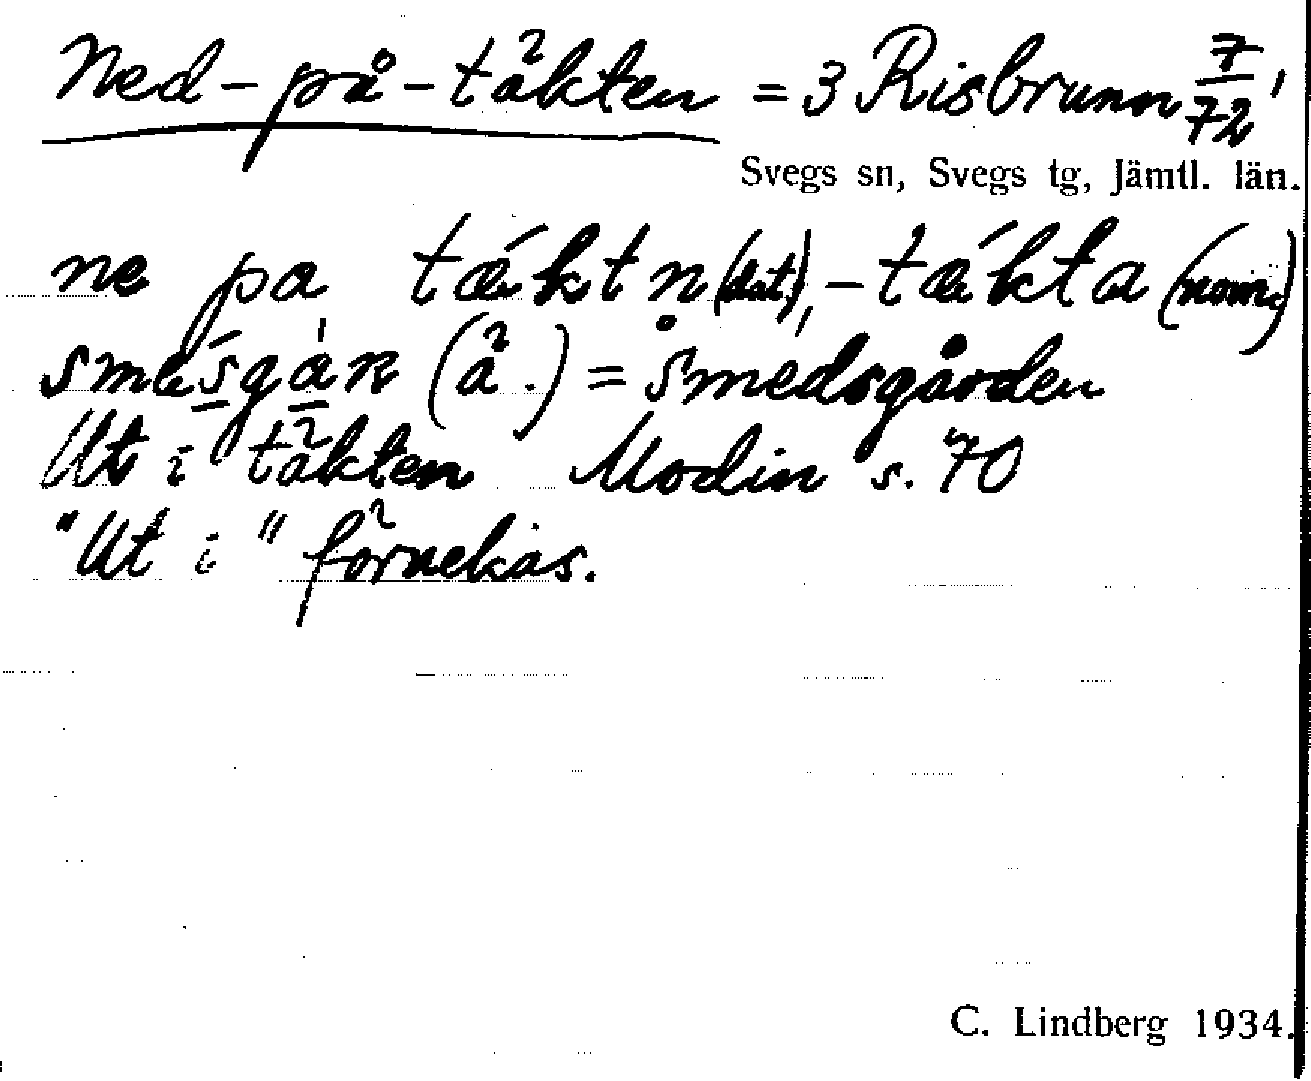 Ned-på-täkten = 3 Risbrunn 7/72,
Svegs sn, Svegs tg, Jämtl. län.
ne pa tǽktn̥ (dat), - tǽkta (nom.)
(å .) = Smedsgården
Ut i täkten Modin s. 70
"Ut i" förnekas.
C. Lindberg 1934.